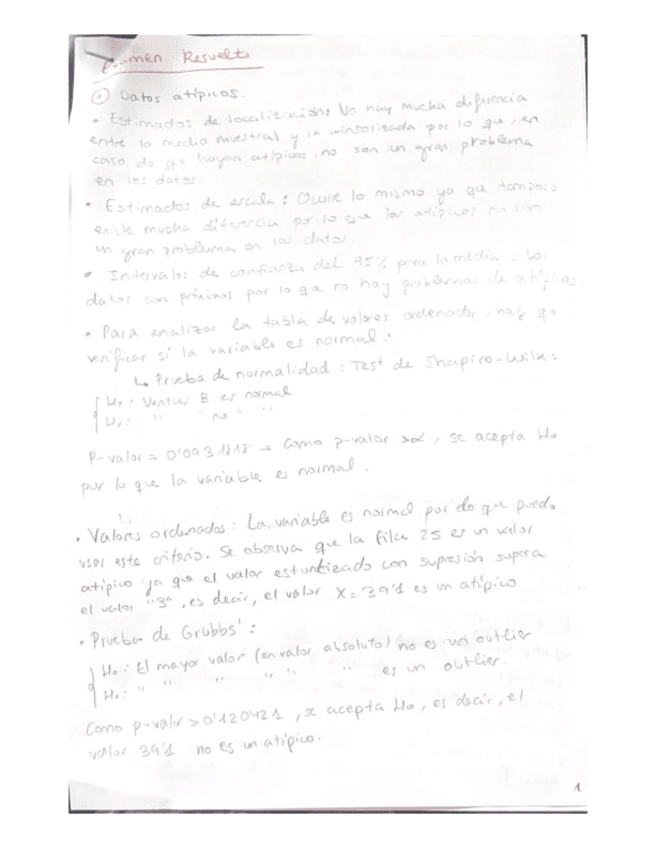 Examen Resuelto
① Datos atípicos.
• Estimados de localización: No hay mucha diferencia
entre la media muestral y la winsolizada por lo que, en
caso de q hayan atípicos, no son un gran problema
en los datos.
• Estimados de escala: Ocurre lo mismo ya que tampoco
existe mucha diferencia por lo que los atípicos no son
un gran problema en los datos.
• Intervalos de confianza del 95% para la media: Los
datos son próximos por lo qe no hay problemas de atípicos.
• Para analizar la tabla de valores ordenados, hay qe
verificar si la variable es normal:
↳ Prueba de normalidad: Test de Shapiro-Wilk:
H₀: Ventas B es normal
H₁: " " no " "
P-valor = 0'0931818 → Como p-valor >α, se acepta H₀
por lo que la variable es normal.
• Valores ordenados: La variable es normal por lo que puedo
usar este criterio. Se observa que la fila 25 es un valor
atípico ya que el valor estuntizado con supresión supera
el valor "3", es decir, el valor X=39'1 es un atípico
• Prueba de Grubbs':
H₀: El mayor valor (en valor absoluto) no es un outlier
H₁: " " " " " " es un outlier.
Como p-valor > 0'120421, se acepta H₀, es decir, el
valor 39'1 no es un atípico.
1